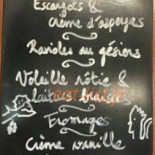 Escargots &
crème d'asperges
Ravioles au gésiers
Volaille rôtie &
laitues braisées
Fromages
Crème vanille